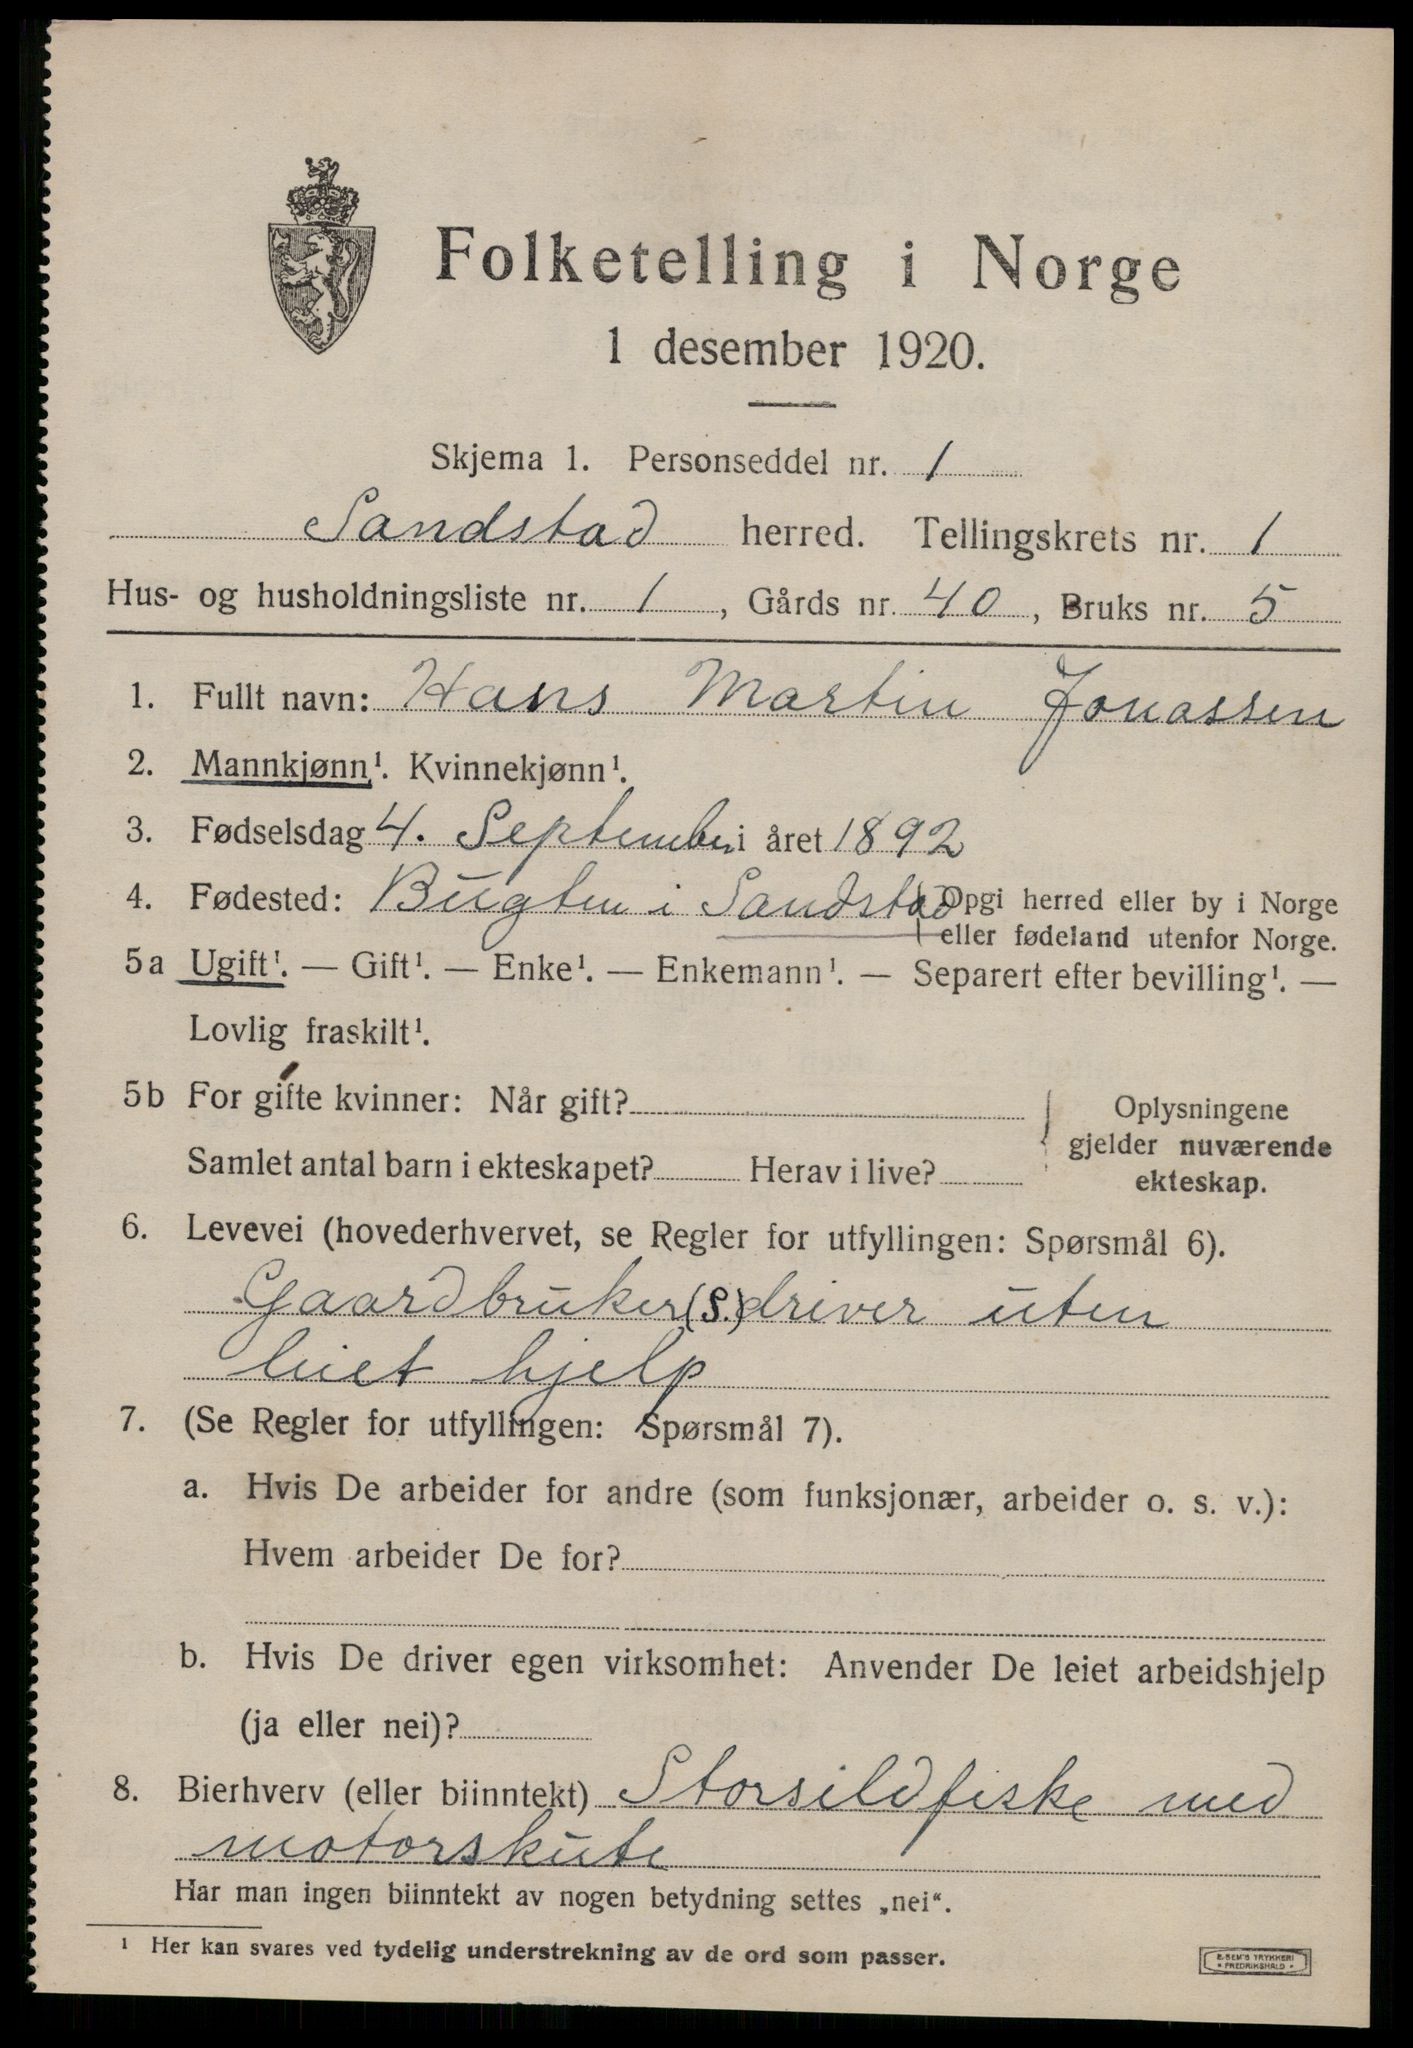 Folketelling i Norge
1 desember 1920.
Skjema 1. Personseddel nr. 1
Sandstad herred. Tellingskrets nr. 1
Hus- og husholdningsliste nr. 1, Gårds nr. 40, Bruks nr. 5
1. Fullt navn: Hans Martin Jonassen
2. Mannkjønn¹. Kvinnekjønn¹.
3. Fødselsdag 4. September i året 1892
4. Fødested: Bugten i Sandstad Opgi herred eller by i Norge
eller fødeland utenfor Norge.
5a Ugift¹. — Gift¹. — Enke¹. — Enkemann¹. — Separert efter bevilling¹. —
Lovlig fraskilt¹.
5b For gifte kvinner: Når gift? Oplysningene
gjelder nuværende
Samlet antal barn i ekteskapet? Herav i live? ekteskap.
6. Levevei (hovederhvervet, se Regler for utfyllingen: Spørsmål 6).
Gaardbruker (S.) driver uten
leiet hjelp
7. (Se Regler for utfyllingen: Spørsmål 7).
a. Hvis De arbeider for andre (som funksjonær, arbeider o. s. v.):
Hvem arbeider De for?
b. Hvis De driver egen virksomhet: Anvender De leiet arbeidshjelp
(ja eller nei)?
8. Bierhverv (eller biinntekt) Storsildfiske med
motorskute
Har man ingen biinntekt av nogen betydning settes „nei“.
¹ Her kan svares ved tydelig understrekning av de ord som passer.
E. SEM'S TRYKKERI
FREDRIKSHALD